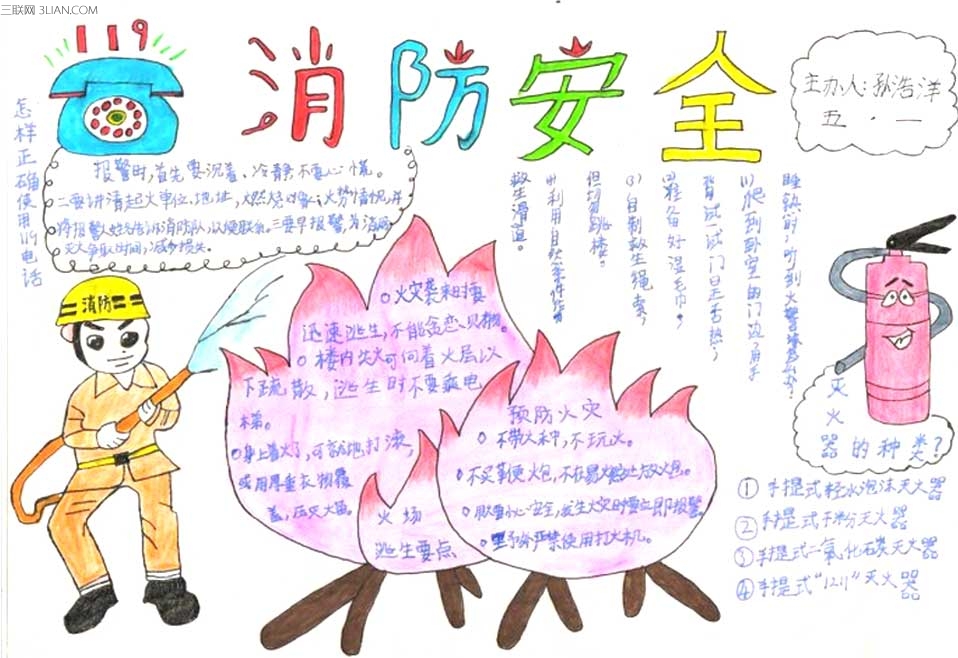 三联网 3LIAN.COM
119
消防安全
主办人:孙浩洋
五·一
怎样正确使用119电话
报警时,首先要沉着、冷静不要心慌。
二要讲清起火单位、地址,燃烧对象、火势情况,并
将报警人姓名告诉消防队,以便联系。三要早报警,为消防
灭火争取时间,减少损失。
消防
睡熟时,听到火警该怎么办?
(1)爬到卧室的门边,用手
背试一试门是否热;
(2)准备好湿毛巾;
(3)自制救生绳索,
但切勿跳楼。
(4)利用自然条件作
救生滑道。
火灾袭来时要
迅速逃生,不能贪恋财物。
楼内失火可向着火层以
下疏散,逃生时不要乘电
梯。
身上着火了,可就地打滚,
或用厚重衣物覆
盖,压灭火苗。
火场
逃生要点
预防火灾
不带火种,不玩火。
不买事便火包,不在易燃处放火包。
用要小心安全,发生火灾时要立即报警。
野外严禁使用打火机。
灭火器的种类?
①手提式轻水泡沫灭火器
②手提式干粉灭火器
③手提式二氧化碳灭火器
④手提式“1211”灭火器